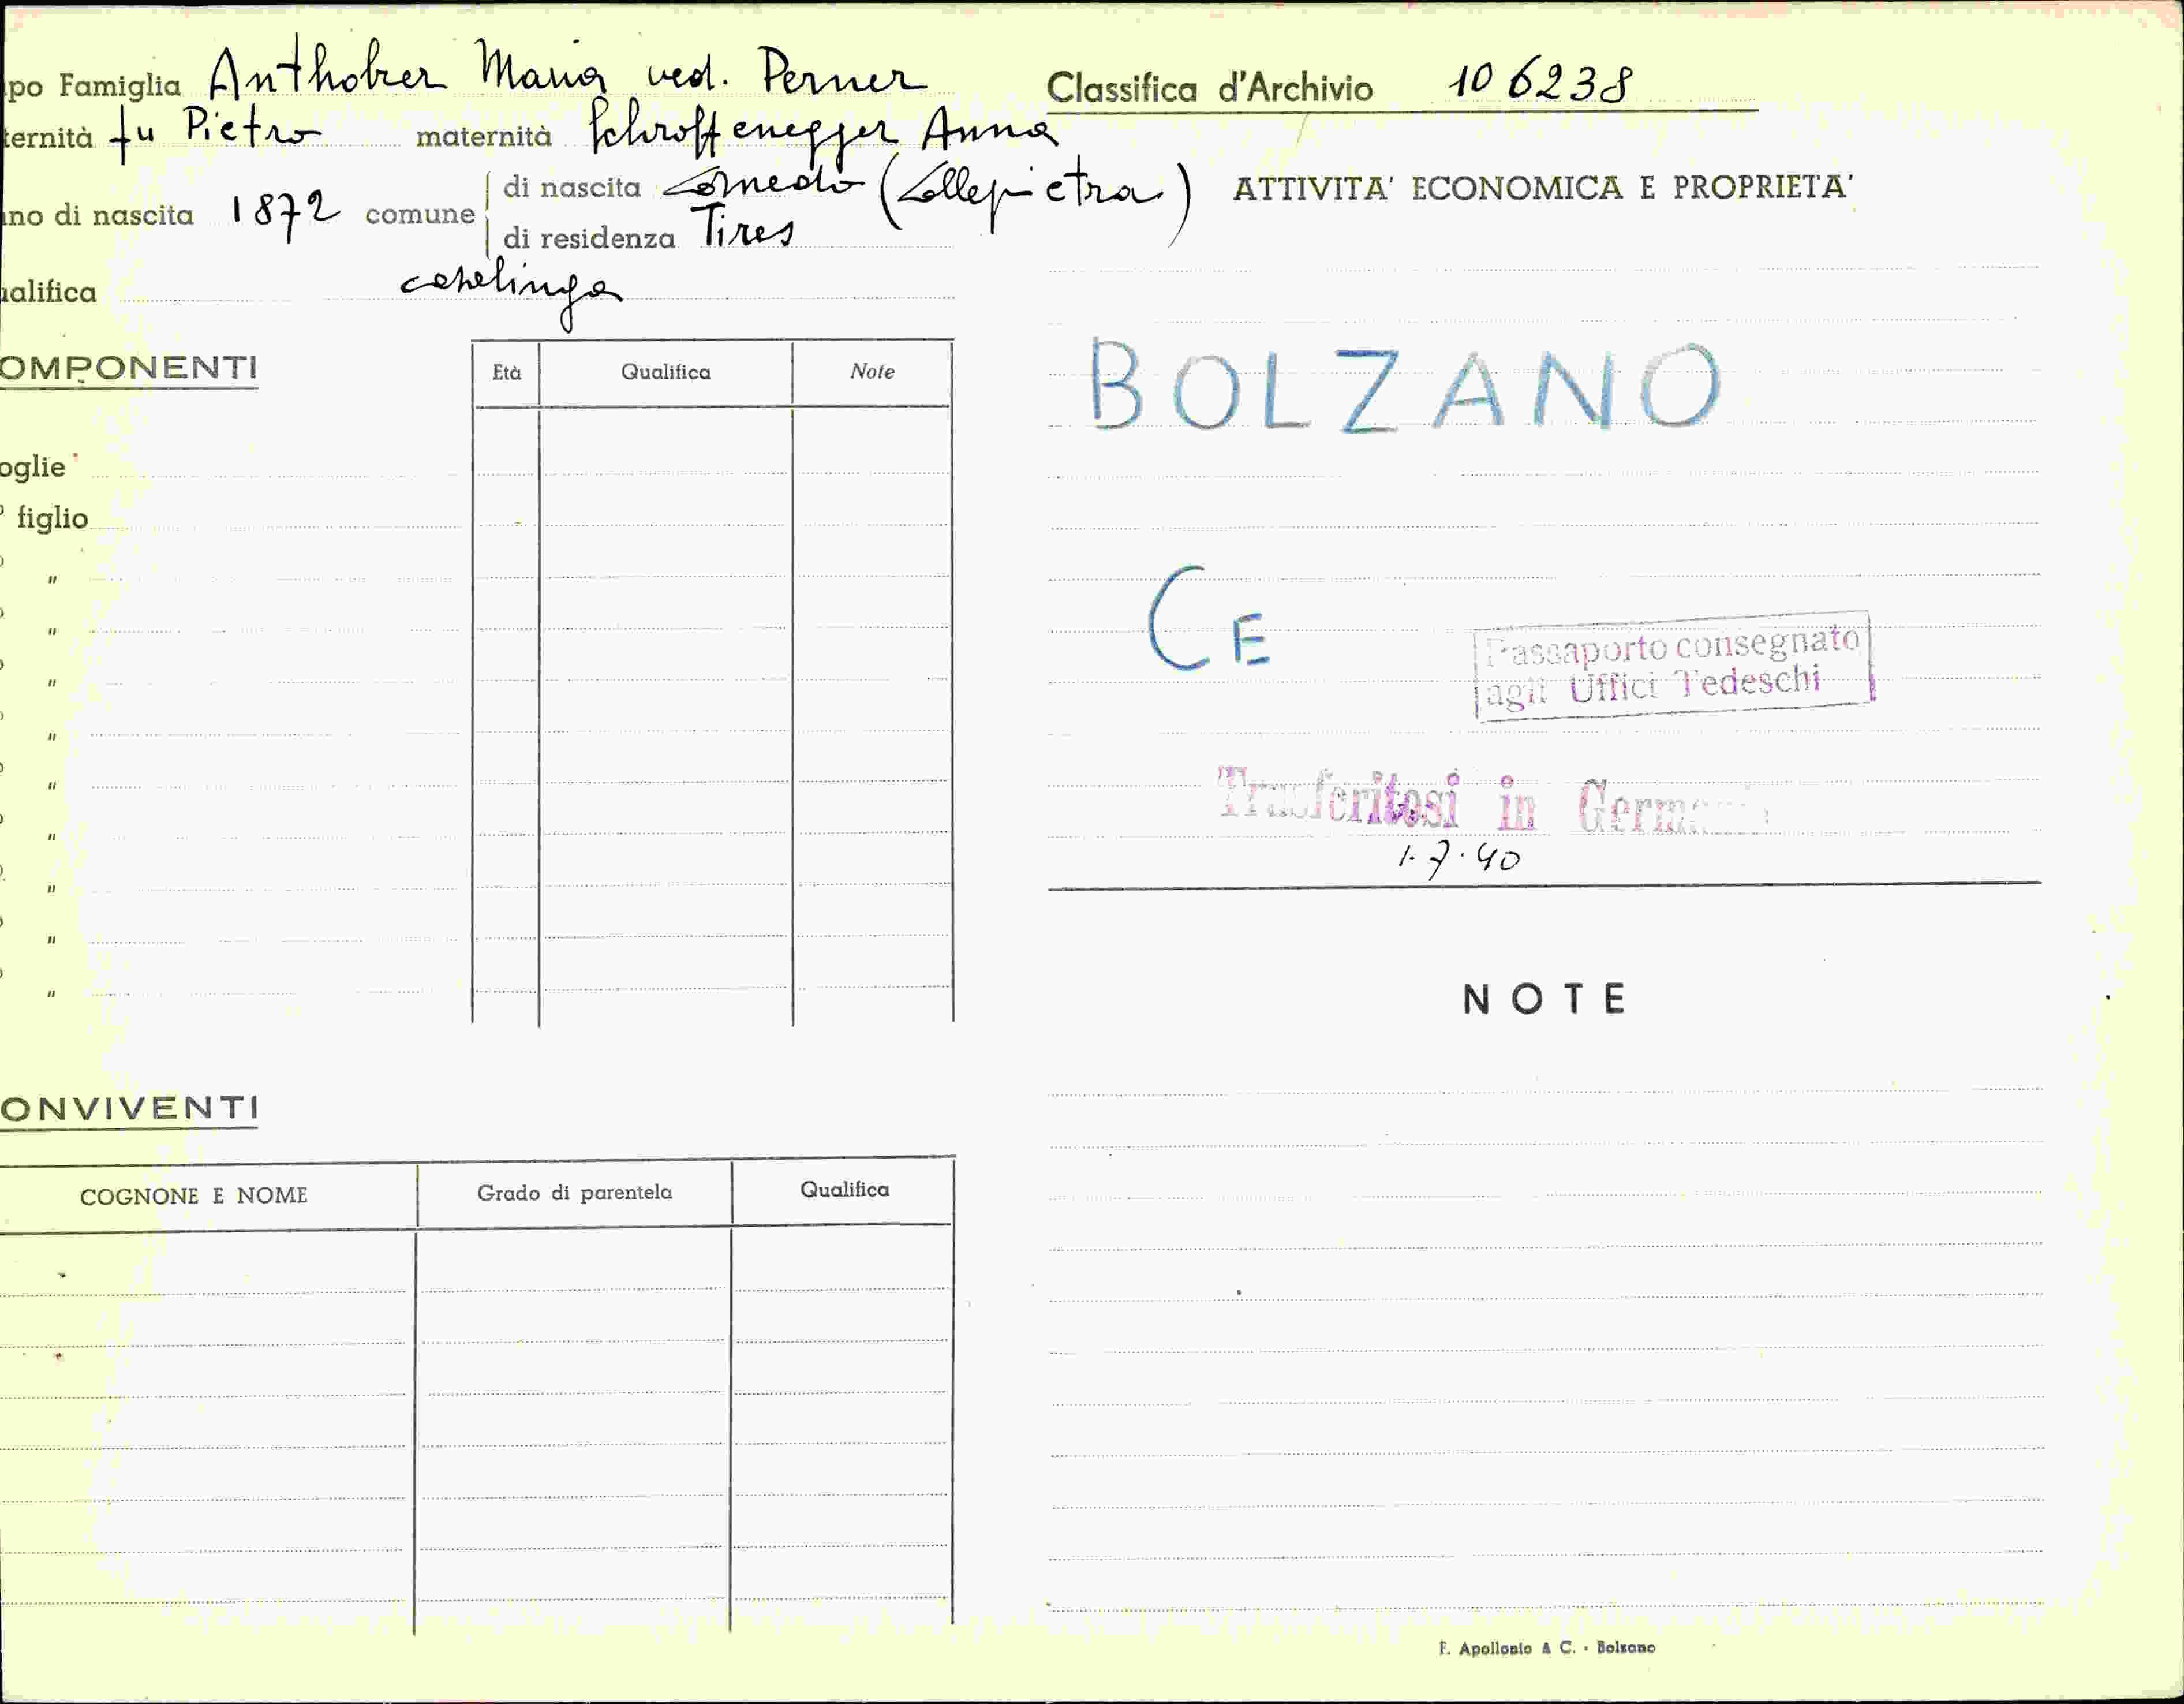 po Famiglia Anthofer Maria ved. Perner
ternità fu Pietro maternità Schroffenegger Anna
no di nascita 1872 comune di nascita Cornedo (Collepietra)
di residenza Tires
alifica casalinga
OMPONENTI
Età Qualifica Note
oglie
figlio
"
"
"
"
"
"
"
"
"
ONVIVENTI
COGNONE E NOME Grado di parentela Qualifica
Classifica d'Archivio 106238
ATTIVITA' ECONOMICA E PROPRIETA'
BOLZANO
CE
Passaporto consegnato
agli Uffici Tedeschi
Trasferitosi in Germania
1.7.40
NOTE
F. Apollonio & C. - Bolzano